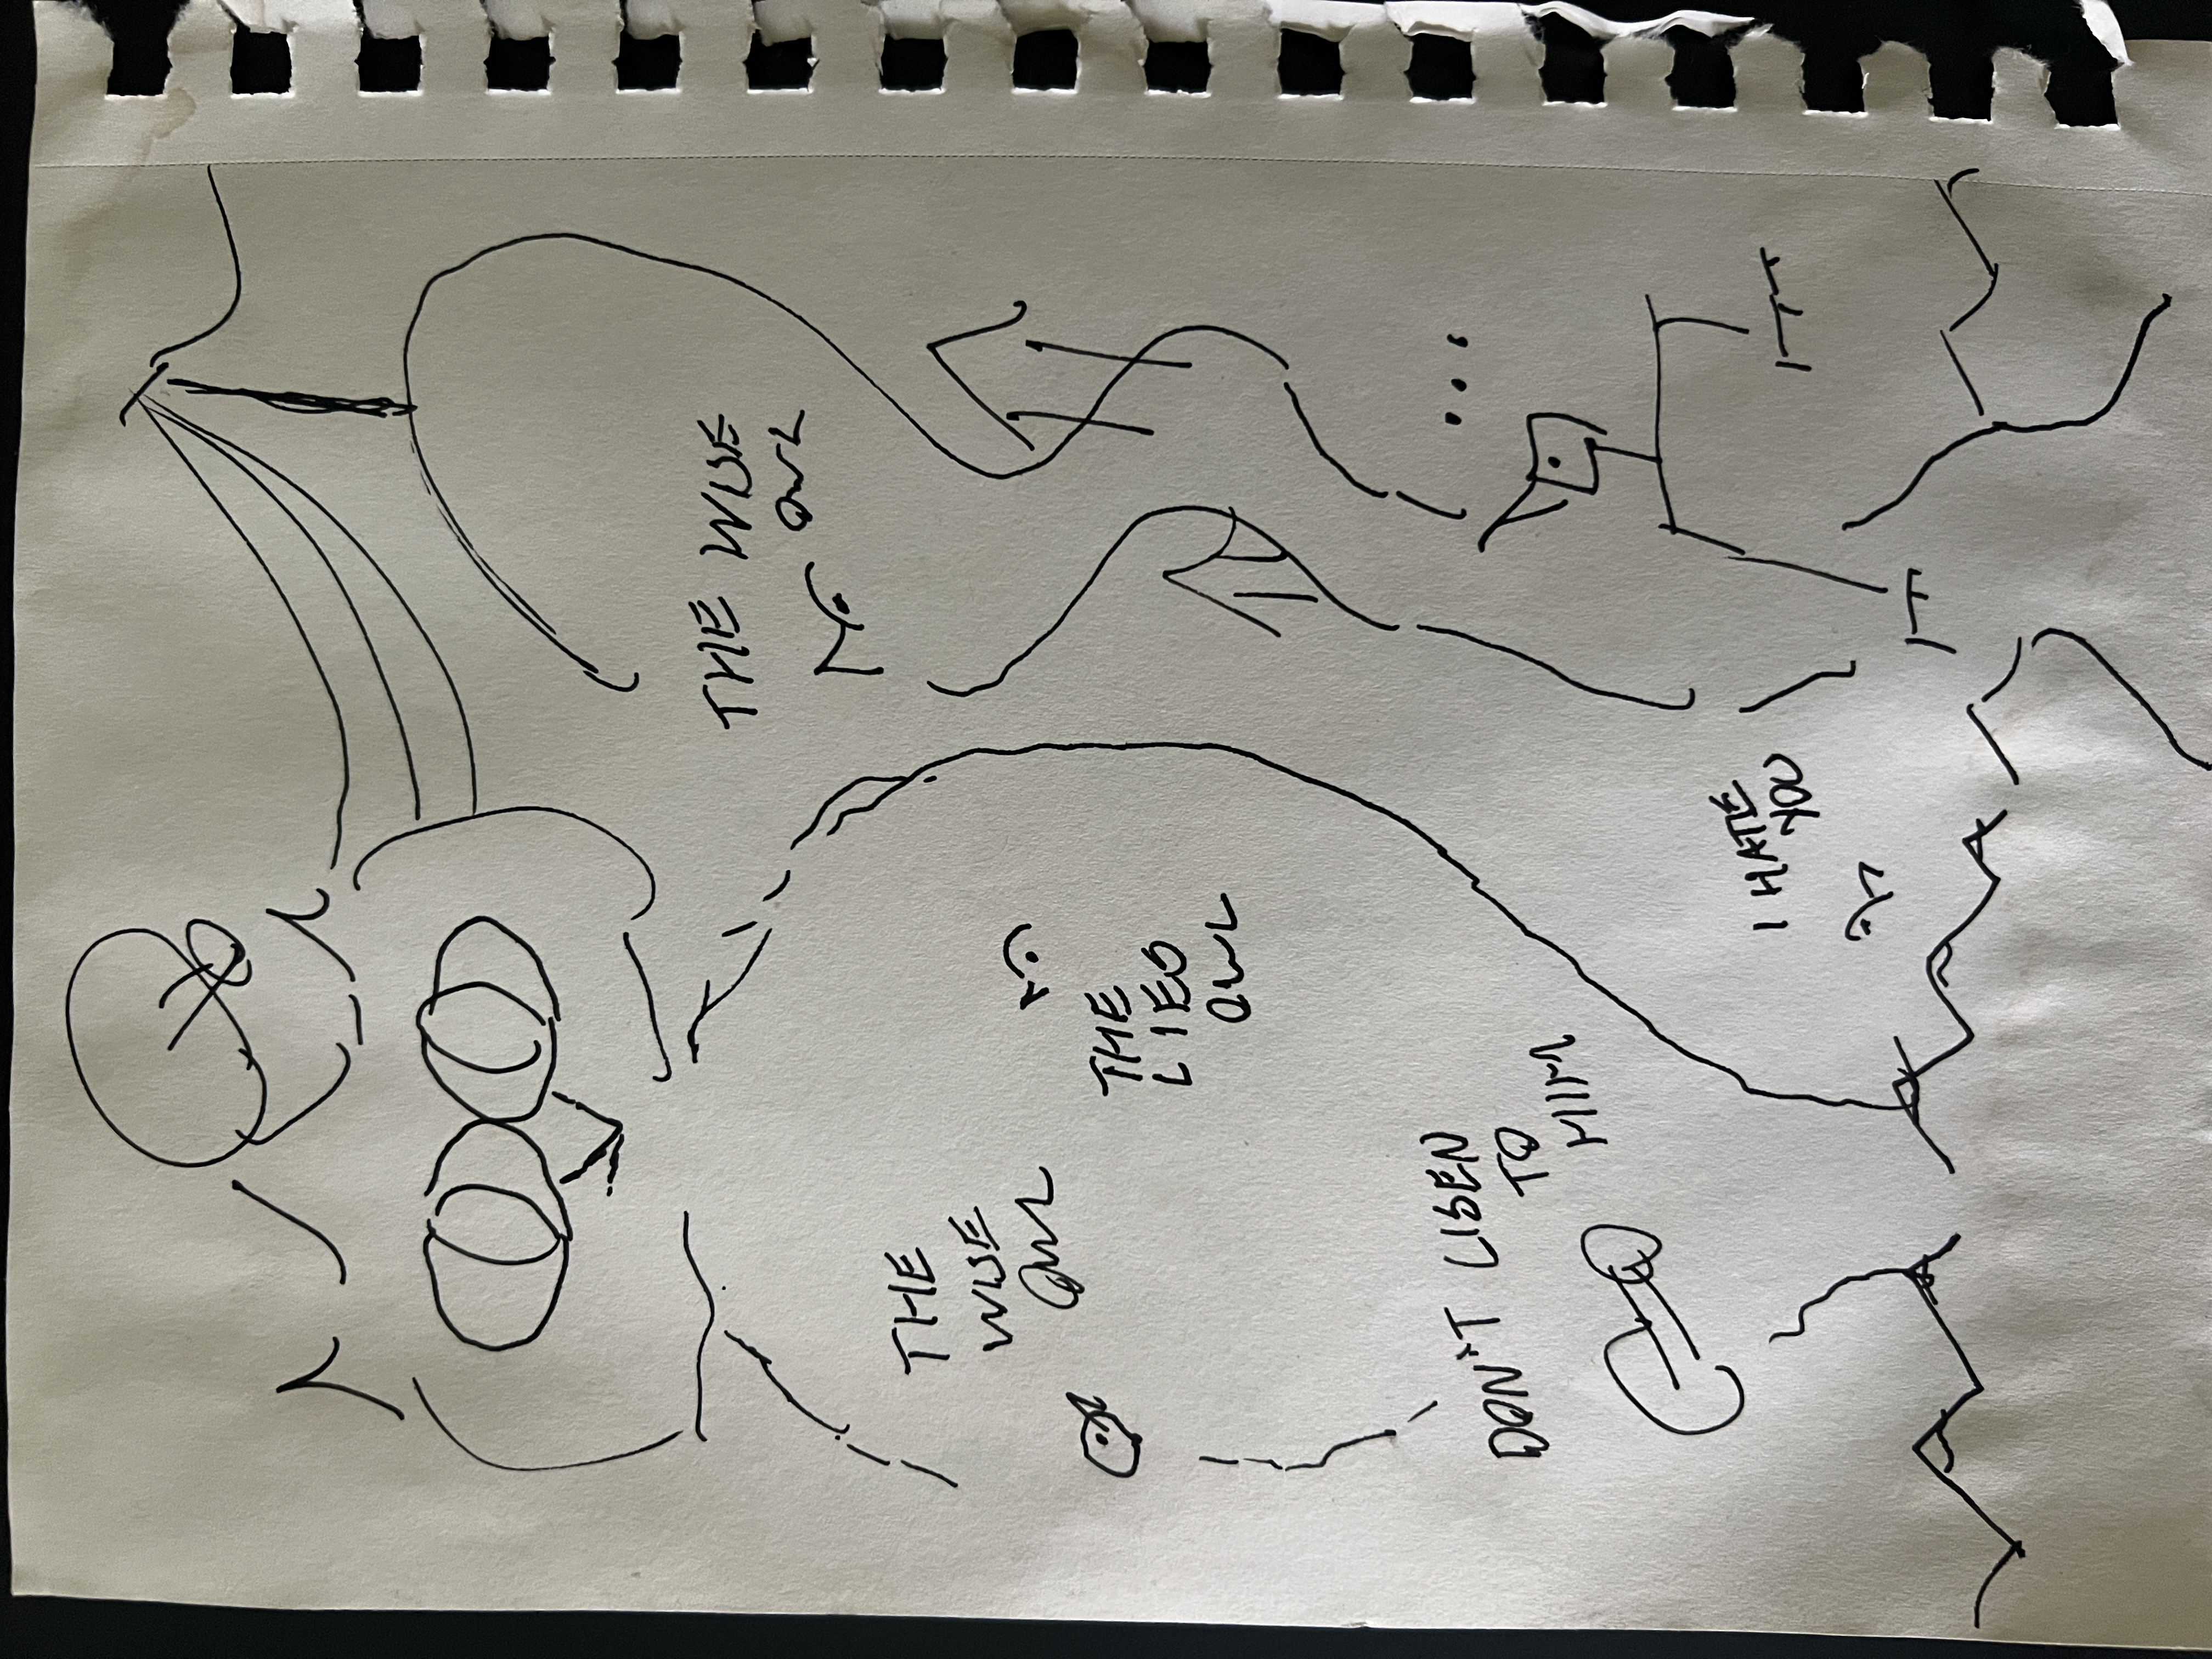 THE WISE
OWL
THE
WISE
OWL
THE
LIES
OWL
DON'T LISEN
TO
HIM
I HATE
YOU
...